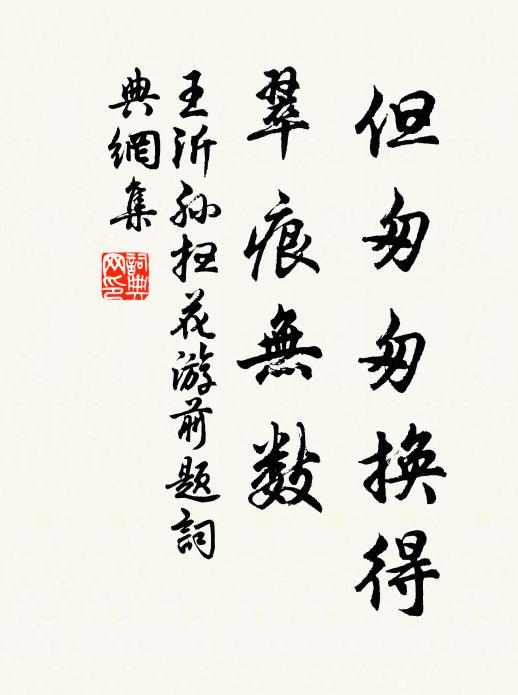 但匆匆換得
翠痕無數
王沂孙扫花游前题詞
典網集
詞典网印